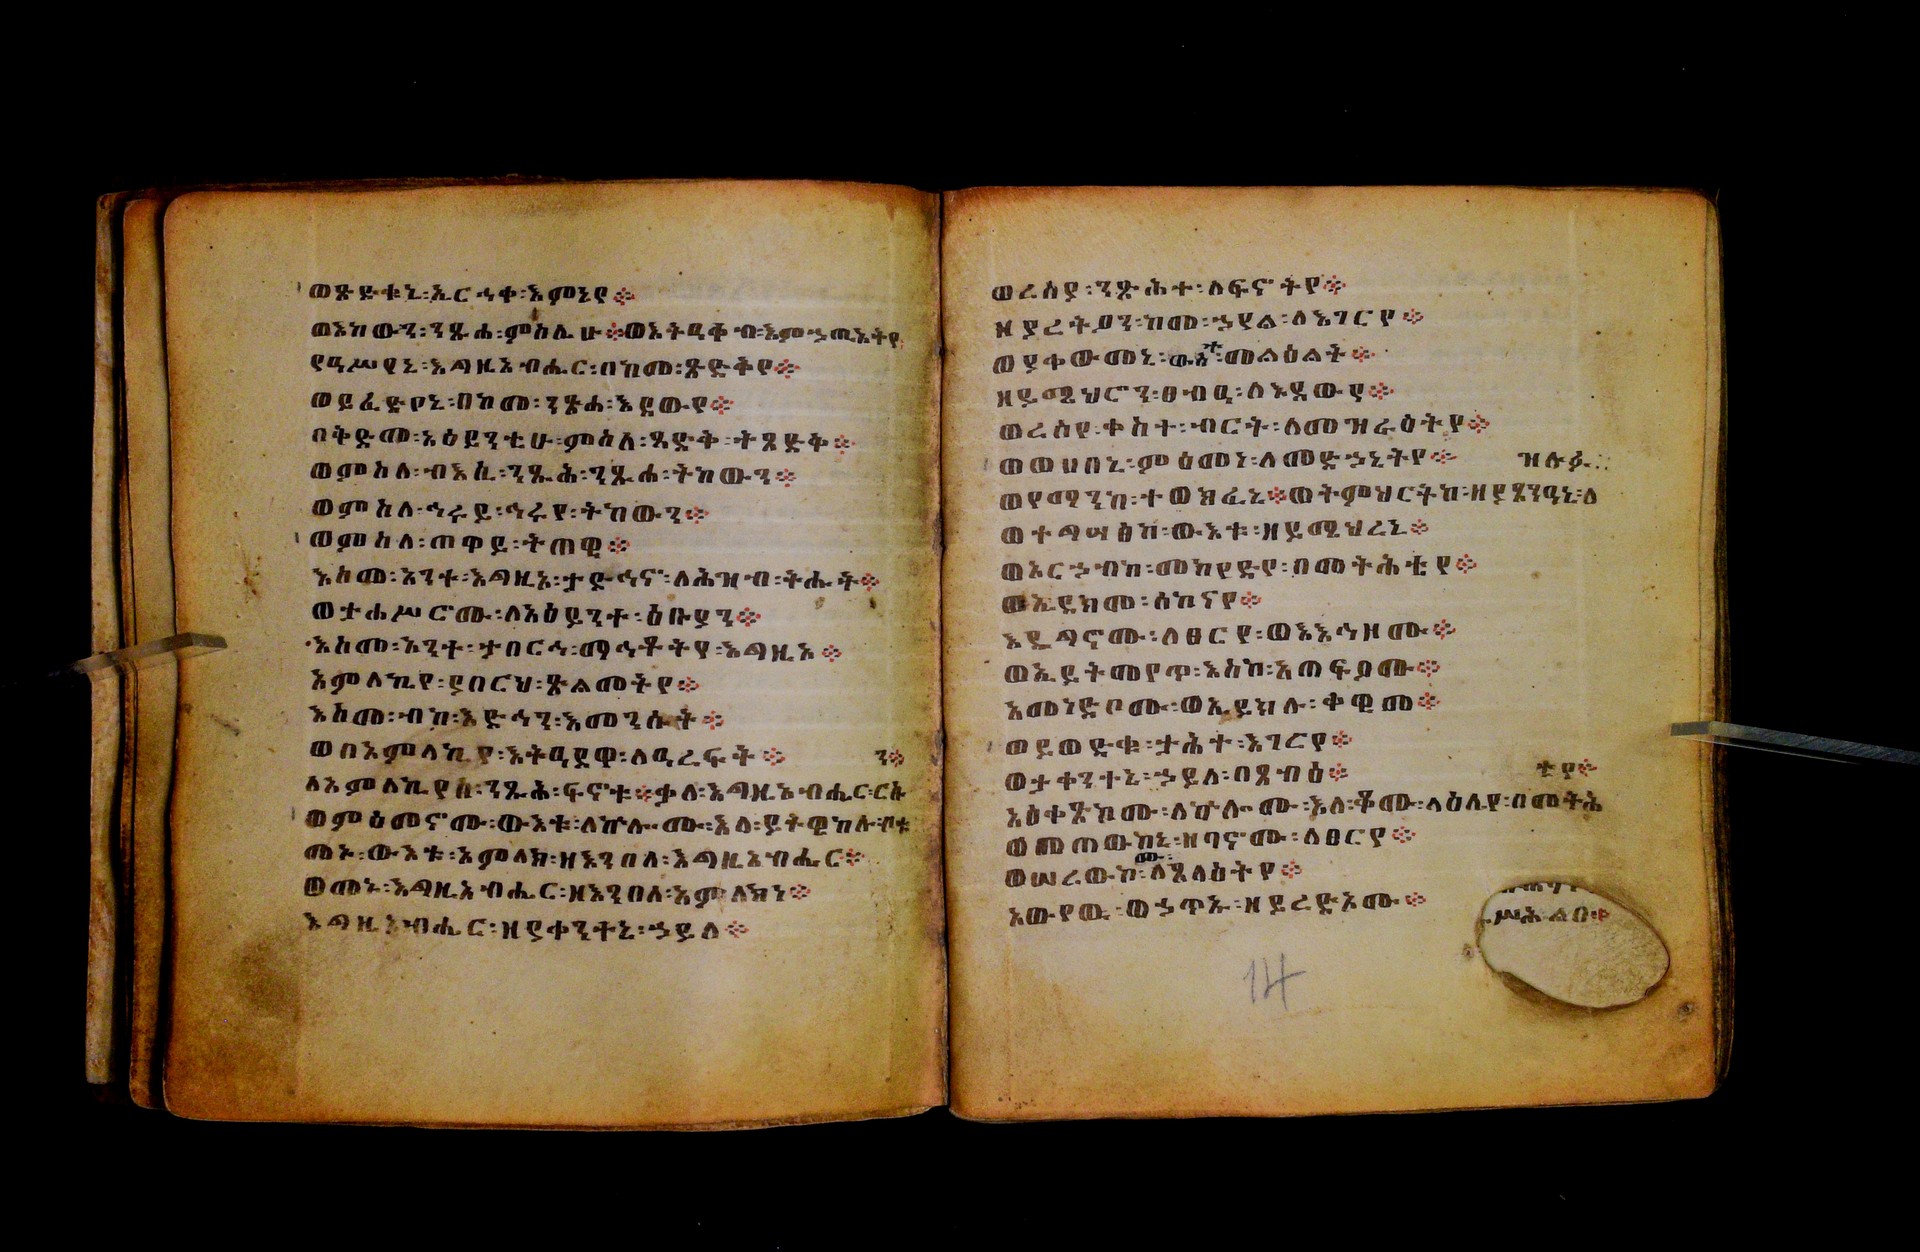 ወጽድቁኒ፡ኢርኅቀ፡እምኔየ፨
ወእከውን፡ንጹሐ፡ምስሌሁ፨ወእትዓቀብ፡እምኃጢአትየ
የዓሥየኒ፡እግዚአብሔር፡በከመ፡ጽድቅየ፨
ወይፈድየኒ፡በከመ፡ንጽሐ፡እደውየ፨
በቅድመ፡አዕይንቲሁ፡ምስለ፡ጻድቅ፡ትጸድቅ፨
ወምስለ፡ብእሲ፡ንጹሕ፡ንጹሐ፡ትከውን፨
ወምስለ፡ኅሩይ፡ኅሩየ፡ትከውን፨
ወምስለ፡ጠዋይ፡ትጠዊ፨
እስመ፡አንተ፡እግዚኦ፡ታድኅኖ፡ለሕዝብ፡ትሑት፨
ወታሐሥሮሙ፡ለአዕይንተ፡ዕቡያን፨
እስመ፡አንተ፡ታበርኅ፡ማኅቶትየ፡እግዚኦ፨
አምላኪየ፡ያበርህ፡ጽልመትየ፨
እስመ፡ብከ፡እድኅን፡እመንሱት፨
ወበአምላኪየ፡እትዓደዋ፡ለዓረፍት፨
ን፨
ለአምላኪየሰ፡ንጹሕ፡ፍኖቱ፨ቃለ፡እግዚአብሔር፡ርሱ
ወምዕመኖሙ፡ውእቱ፡ለኵሎሙ፡እለ፡ይትዌከሉ፡ቦቱ
መኑ፡ውእቱ፡አምላክ፡ዘእንበለ፡እግዚአብሔር፨
ወመኑ፡እግዚአብሔር፡ዘእንበለ፡አምላክነ፨
እግዚአብሔር፡ዘያቀንተኒ፡ኃይለ፨
ወረሰያ፡ንጽሕተ፡ለፍኖትየ፨
ዘያረትዖን፡ከመ፡ኃየል፡ለእገርየ፨
ወያቀውመኒ፡ውስተ፡መልዕልት፨
ዘይሜህሮን፡ፀብዓ፡ለእደውያ፨
ወረሰየ፡ቀስተ፡ብርት፡ለመዝራዕትየ፨
ወወሀበኒ፡ምዕመነ፡ለመድኃኒትየ፨
ዝሉፈ፨
ወየማንከ፡ተወክፈኒ፨ወትምህርትከ፡ዘያጸንዓኒ፡ለ
ወተግሣፅከ፡ውእቱ፡ዘይሜህረኒ፨
ወአርኃብከ፡መከየድየ፡በመትሕቲየ፨
ወኢደክመ፡ሰኰናየ፨
እዴግኖሙ፡ለፀርየ፡ወእእኅዘሙ፨
ወኢይትመየጥ፡እስከ፡አጠፍዖሙ፨
አመነድቦሙ፡ወኢይክሉ፡ቀዊመ፨
ወይወድቁ፡ታሕተ፡እገርየ፨
ወታቀንተኒ፡ኃይለ፡በጸብዕ፨
ቴየ፨
አዕቀጽኮሙ፡ለኵሎሙ፡እለ፡ቆሙ፡ላዕሌየ፡በመትሕ
ወመጠውከኒ፡ዘባኖሙ፡ለፀርየ፨
ወሠረውኮሙ፡ለጸላዕትየ፨
አውየዉ፡ወኃጥኡ፡ዘይረድኦሙ፨